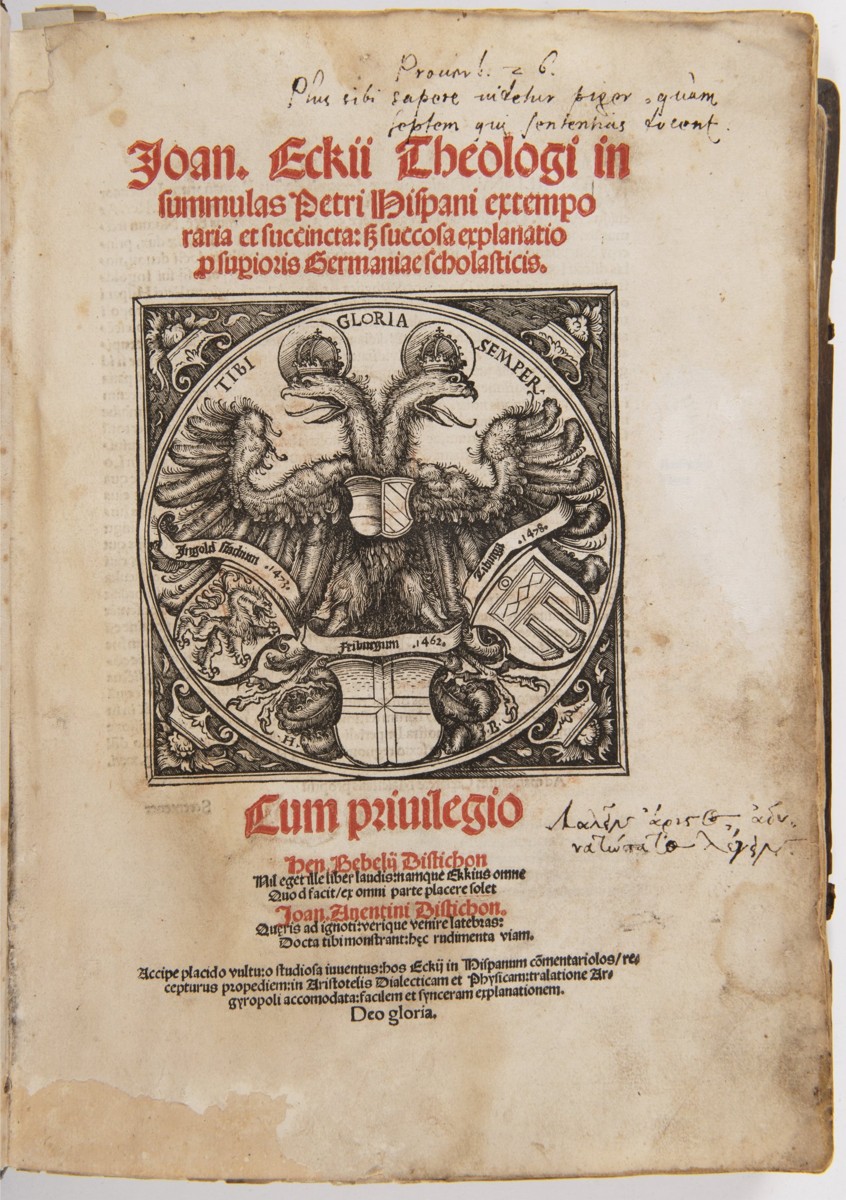 Prouerb. 26.
Plus sibi sapere uidetur piger, quàm
septem qui sententias docent.
Joan. Eckii Theologi in
summulas Petri Hispani extempo
raria et succincta: sꝫ succosa explanatio
ꝓ suꝑioris Germaniae scholasticis.
TIBI GLORIA SEMPER.
Ingold stadium .147
Tibinga .1478.
Friburgum .1462.
.H. .B.
Cum priuilegio
Hen. Bebelij Distichon
Nil eget ille liber laudis: namque Ekkius omne
Quod facit/ ex omni parte placere solet
Joan. Auentini Distichon.
Quęris ad ignoti: verique venire latebras:
Docta tibi monstrant: hęc rudimenta viam.
Accipe placido vultu: o studiosa iuuentus: hos Eckij in Hispanum cõmentariolos/ re⸗
cepturus propediem: in Aristotelis Dialecticam et Physicam: tralatione Ar⸗
gyropoli accomodata: facilem et synceram explanationem.
Deo gloria.
Λαλεῖν ἄριστος, ἀδυ-
νατώτατος λέγειν.